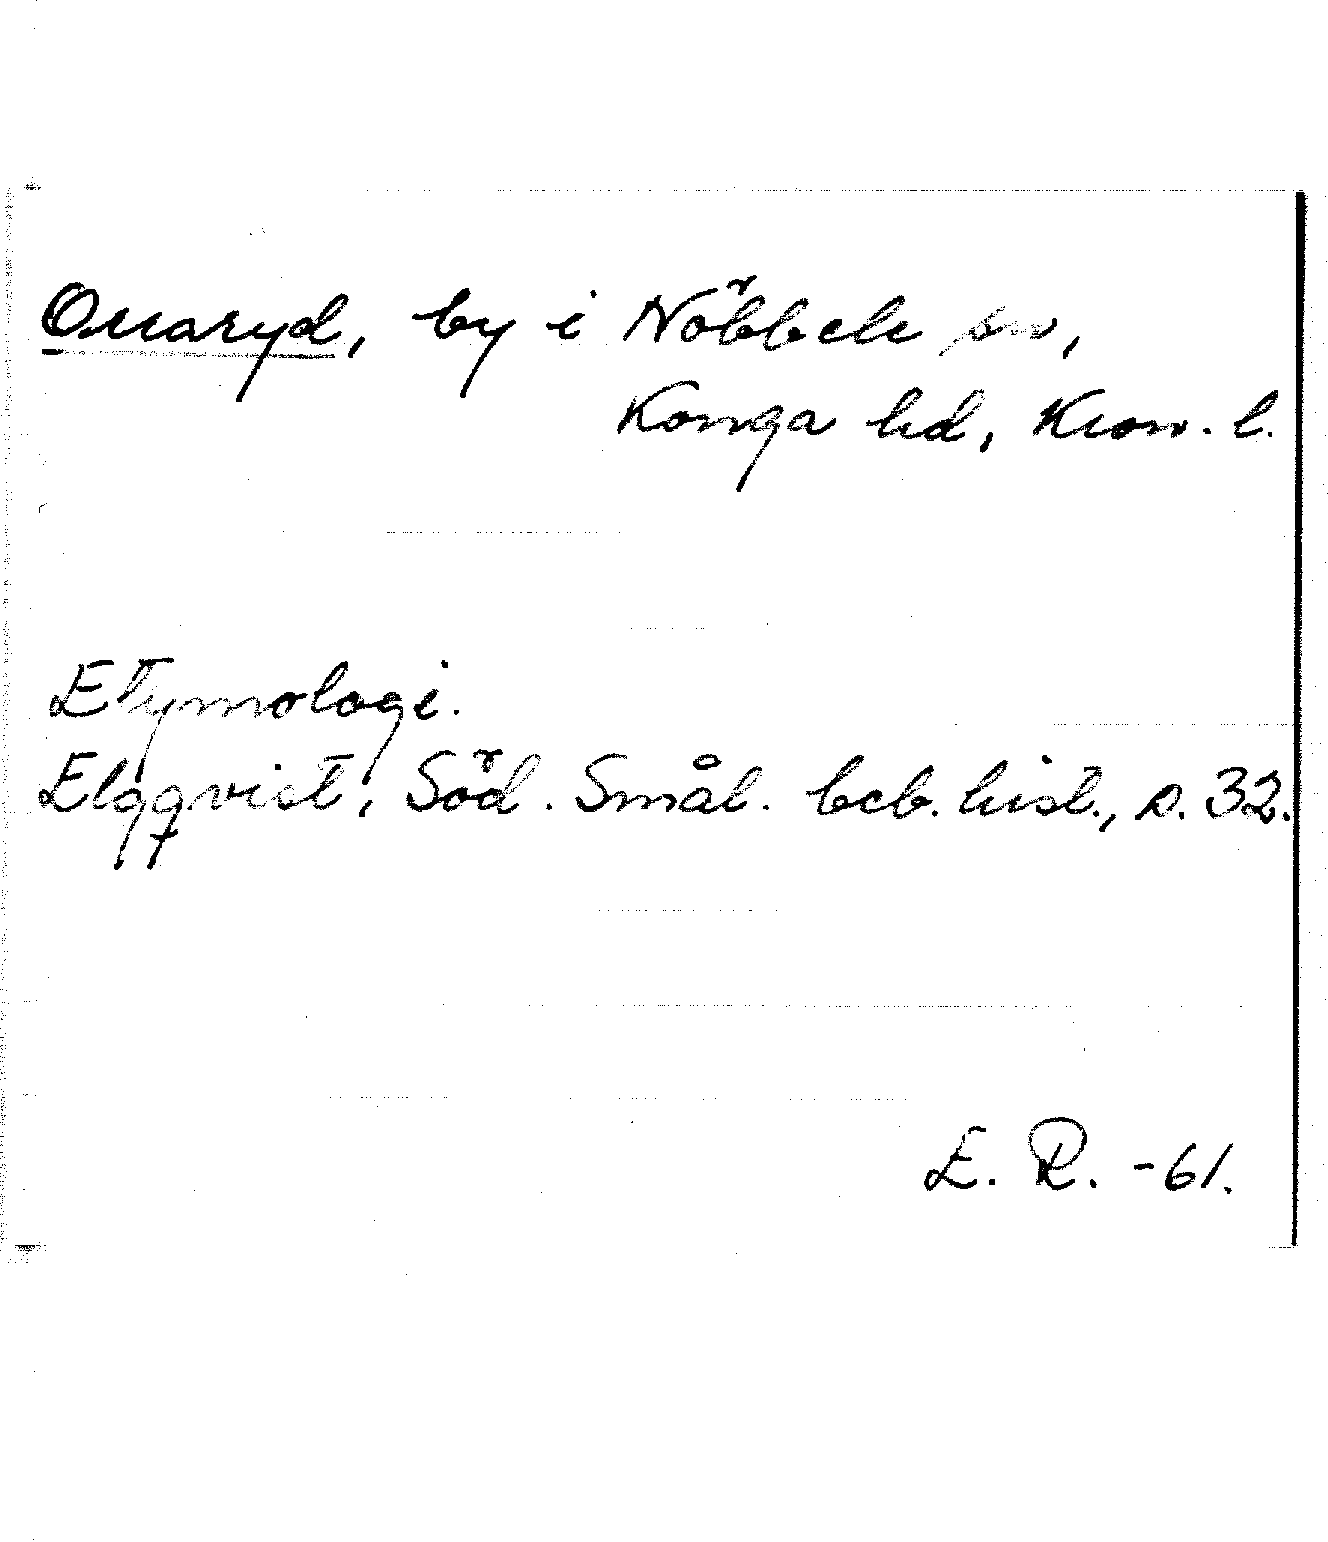 Orraryd, by i Nöbbele sn,
Konga hd, Kron. l.
Etymologi.
Elgqvist, Söd. Smål. beb. hist., s. 32.
E. R. -61.